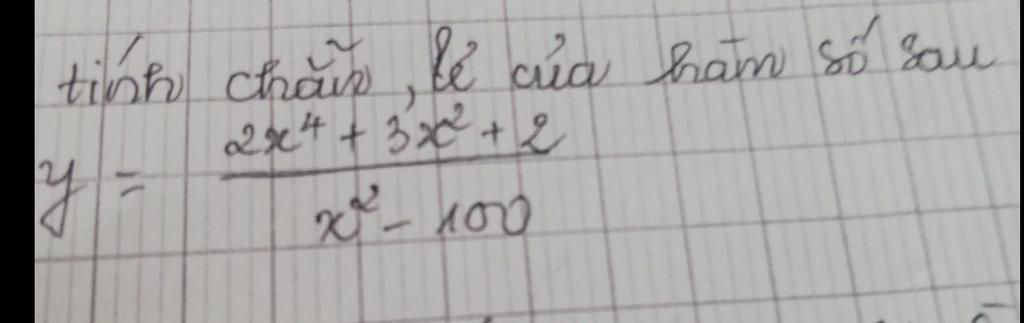 tính chẵn, lẻ của hàm số sau
y = \frac{2x^4 + 3x^2 + 2}{x^2 - 100}